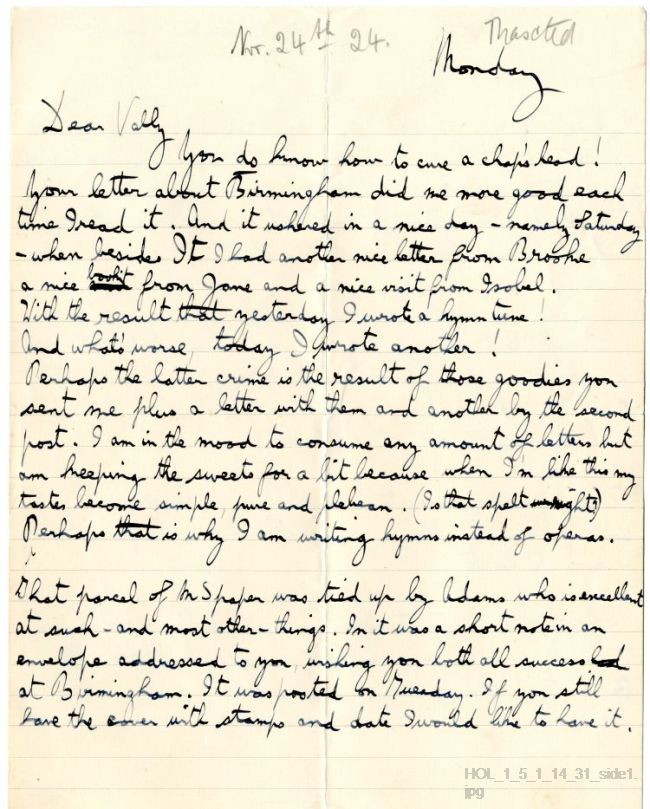 Nov. 24th 24.
Thaxted
Monday
Dear Vally
You do know how to cure a chap's head!
Your letter about Birmingham did me more good each
time I read it. And it ushered in a nice day - namely Saturday
- when besides It I had another nice letter from Brooke
a nice book't from Jane and a nice visit from Isobel.
With the result that yesterday I wrote a hymn tune!
And what's worse, today I wrote another!
Perhaps the latter crime is the result of those goodies you
sent me plus a letter with them and another by the second
post. I am in the mood to consume any amount of letters but
am keeping the sweets for a bit because when I'm like this my
tastes become simple pure and plebean. (Is that spelt right)
Perhaps that is why I am writing hymns instead of operas.
That parcel of MS paper was tied up by Adams who is excellent
at such - and most other - things. In it was a short note in an
envelope addressed to you, wishing you both all success
at Birmingham. It was posted on Tuesday. If you still
have the cover with stamps and date I would like to have it.
HOL_1_5_1_14_31_side1.
jpg